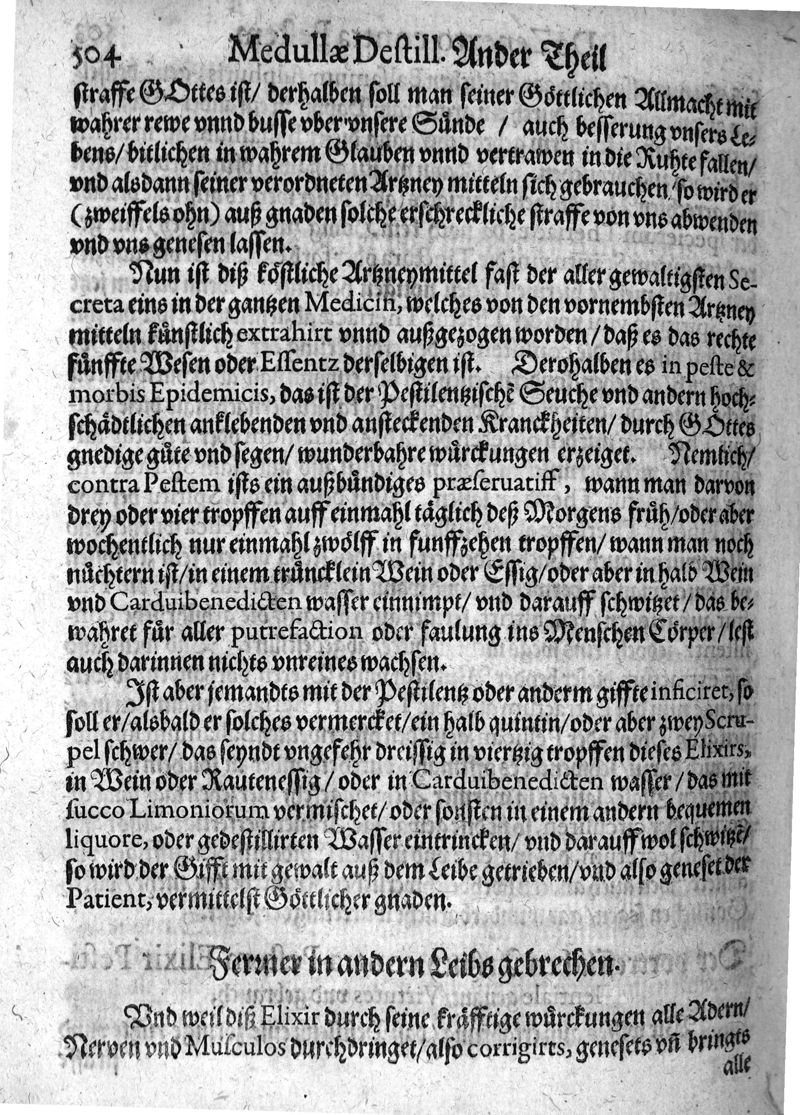 504 Medullæ Destill. Ander Theil
straffe GOttes ist/ derhalben soll man seiner Göttlichen Allmacht mit
wahrer rewe vnnd busse vber vnsere Sünde / auch besserung vnsers Le-
bens/ bitlichen in wahrem Glauben vnnd vertrawen in die Ruhte fallen/
vnd alsdann seiner verordneten Artzney mitteln sich gebrauchen/ so wird er
(zweiffels ohn) auß gnaden solche erschreckliche straffe von vns abwenden
vnd vns genesen lassen.
Nun ist diß köstliche Artzneymittel fast der aller gewaltigsten Se-
creta eins in der gantzen Medicin, welches von den vornembsten Artzney
mitteln künstlich extrahirt vnnd außgezogen worden/ daß es das rechte
fünffte Wesen oder Essentz derselbigen ist. Derohalben es in peste &
morbis Epidemicis, das ist der Pestilentzischẽ Seuche vnd andern hoch-
schädtlichen anklebenden vnd ansteckenden Kranckheiten/ durch GOttes
gnedige güte vnd segen/ wunderbahre würckungen erzeiget. Nemlich/
contra Pestem ists ein außbündiges præseruatiff, wann man darvon
drey oder vier tropffen auff einmahl täglich deß Morgens früh/ oder aber
wochentlich nur einmahl zwölff in funffzehen tropffen/ wann man noch
nüchtern ist/ in einem trüncklein Wein oder Essig/ oder aber in halb Wein
vnd Carduibenedicten wasser einnimpt/ vnd darauff schwitzet/ das be-
wahret für aller putrefaction oder faulung ins Menschen Cörper/ lest
auch darinnen nichts vnreines wachsen.
Ist aber jemandts mit der Pestilentz oder anderm giffte inficiret, so
soll er/ alsbald er solches vermercket/ ein halb quintin/ oder aber zwey Scru-
pel schwer/ das seyndt vngefehr dreissig in viertzig tropffen dieses Elixirs,
in Wein oder Rautenessig/ oder in Carduibenedicten wasser/ das mit
succo Limoniorum vermischet/ oder sonsten in einem andern bequemen
liquore, oder gedestillirten Wasser eintrincken/ vnd darauff wol schwitzẽ/
so wird der Gifft mit gewalt auß dem Leibe getrieben/ vnd also geneset der
Patient, vermittelst Göttlicher gnaden.
Ferrner in andern Leibs gebrechen.
Vnd weil diß Elixir durch seine kräfftige würckungen alle Adern/
Nerven vnd Musculos durchdringet/ also corrigirts, genesets vñ bringts
alle